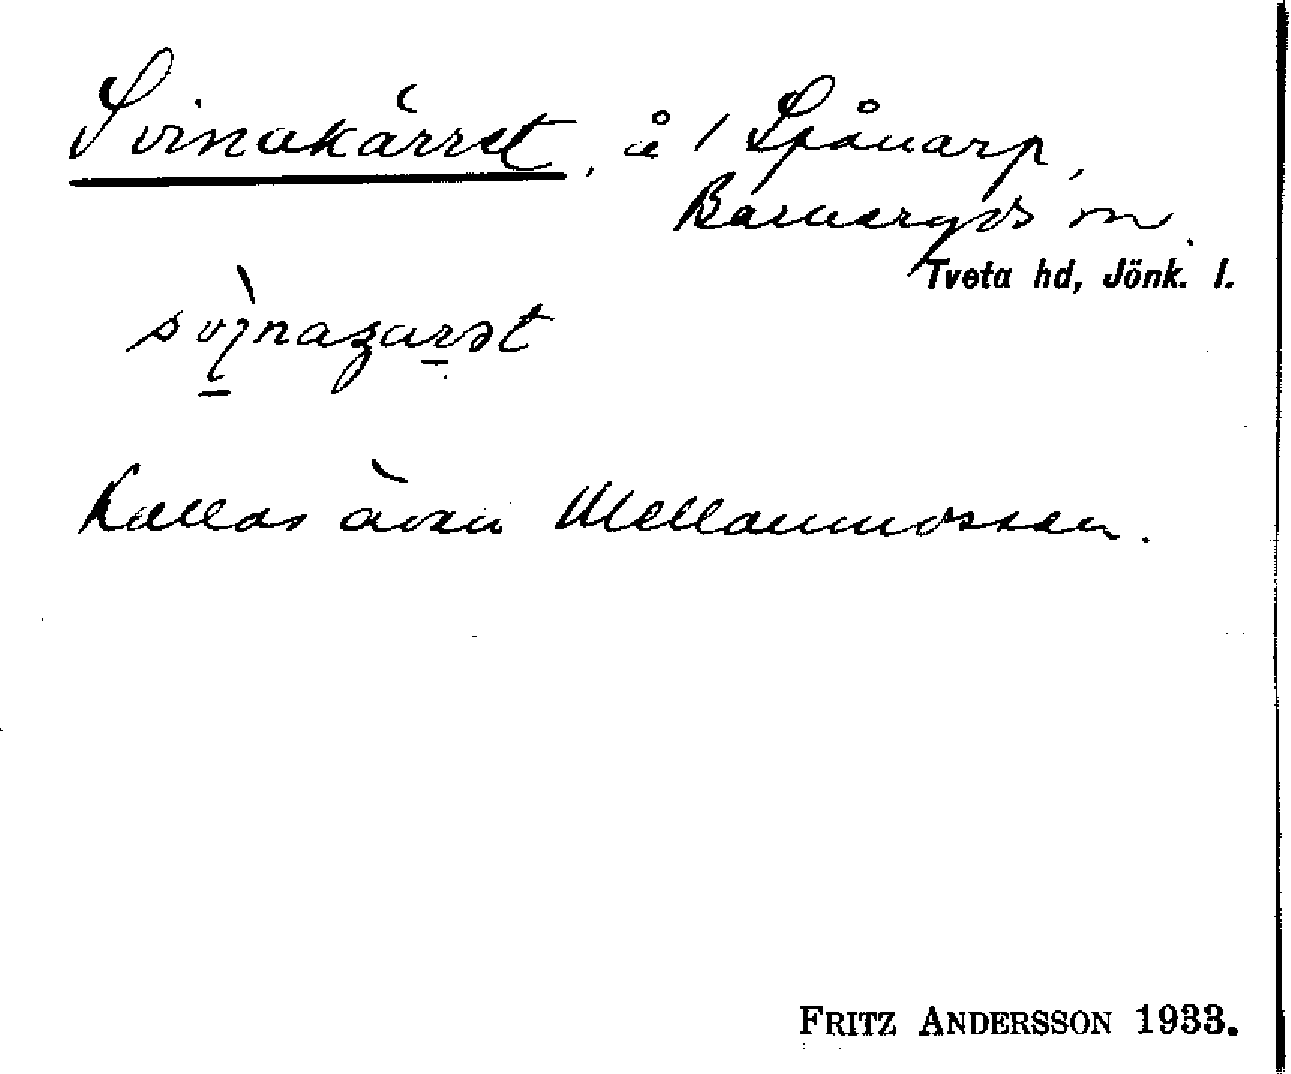 Svinakärret, å / Spånarp,
Barnarps sn.
Tveta hd, Jönk. l.
Kallas även Mellanmossen.
FRITZ ANDERSSON 1933.